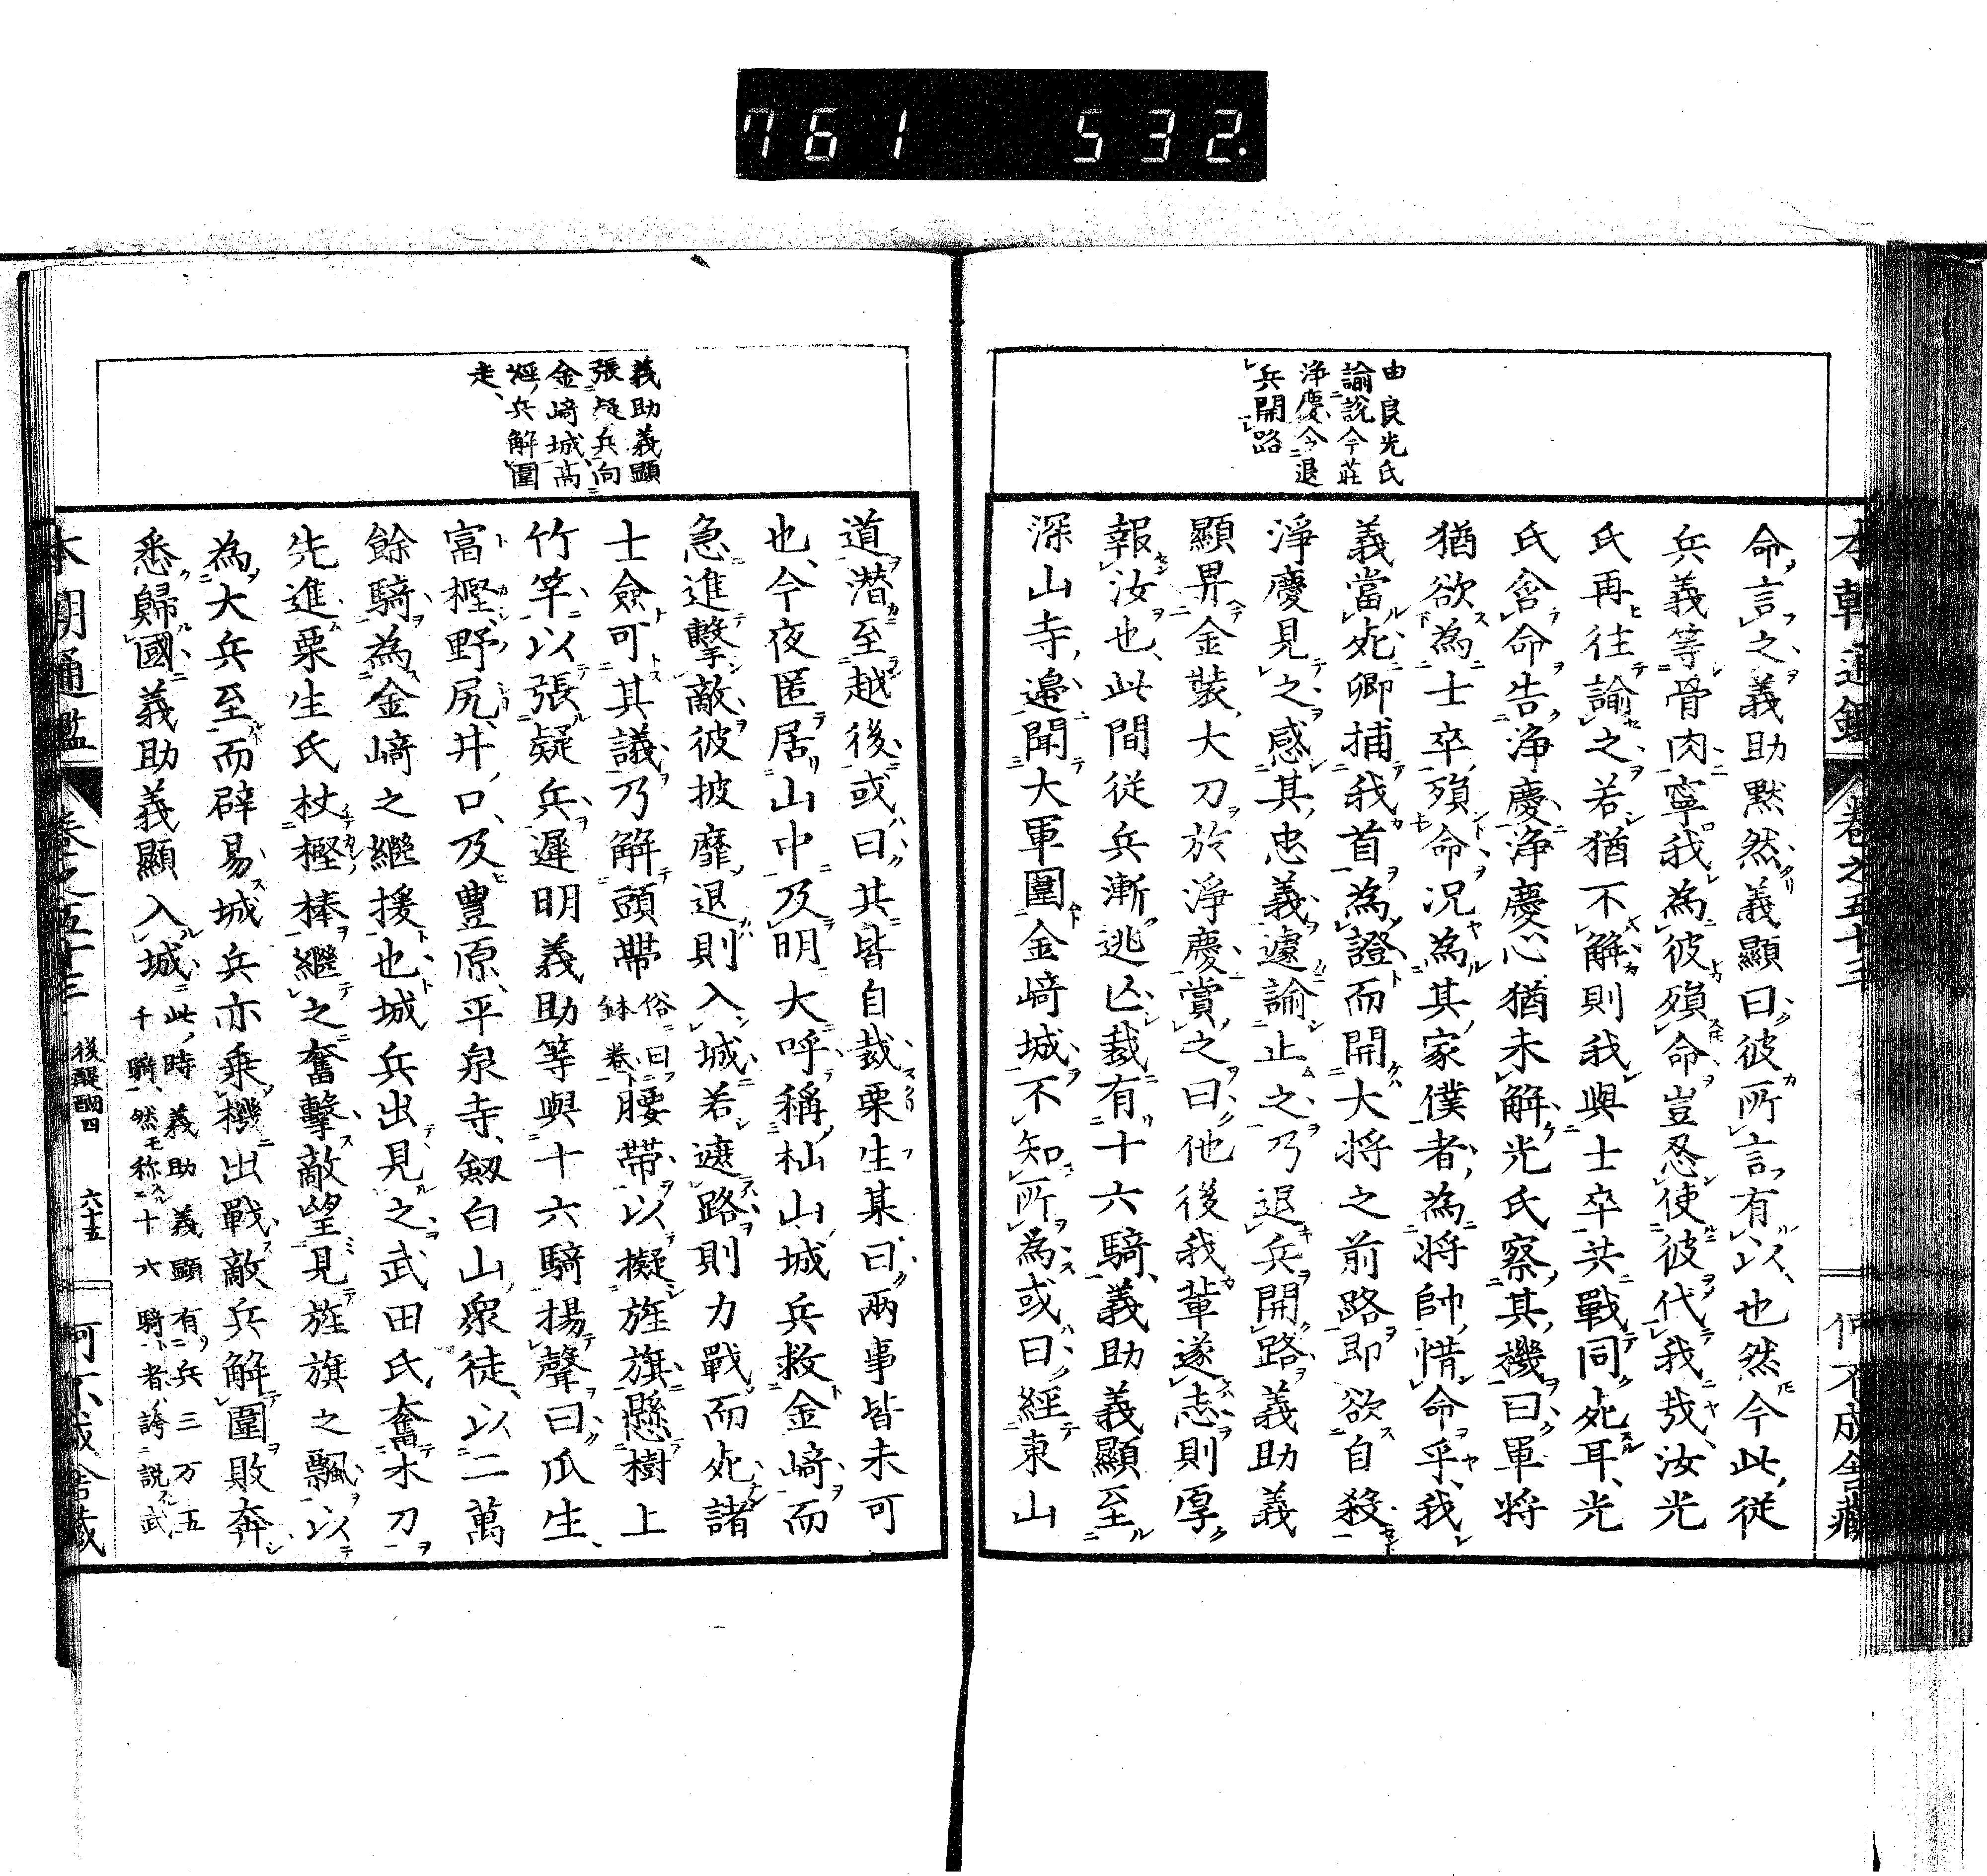 761 532.
本朝通鑑 卷之五十三 何不成舎藏
由良光氏
諭說今莊
淨慶令退
兵開路
命言之義助黙然義顯曰彼所言有以也然今此從
兵義等骨肉寧我為彼殞命豈忍使彼代我㢤汝光
氏再往諭之若猶不解則我與士卒共戰同死耳光
氏含命告淨慶淨慶心猶未解光氏察其機曰軍将
猶欲為士卒殞命况為其家僕者為将帥惜命乎我
義當死卿捕我首為證而開大将之前路即欲自殺
淨慶見之感其忠義遽諭止之乃退兵開路義助義
顯畀金裝大刀於淨慶賞之曰他後我輩遂志則厚
報汝也此間從兵漸逃亡裁有十六騎義助義顯至
深山寺邉聞大軍圍金﨑城不知所為或曰經東山
義助義顯
張疑兵向
金﨑城高
經兵解圍
走
道潜至越後或曰共皆自裁栗生某曰兩事皆未可
也今夜匿居山中及明大呼稱杣山城兵救金﨑而
急進擊敵彼披靡退則入城若遮路則力戰而死諸
士僉可其議乃解頭帶俗曰鉢卷腰帶以擬旌旗懸樹上
竹竿以張疑兵遲明義助等與十六騎揚聲曰瓜生
富樫野尻井口及豊原平泉寺釼白山衆徒以二萬
餘騎為金﨑之繼援也城兵出見之武田氏奮木刀
先進栗生氏杖樫棒繼之奮擊敵望見旌旗之飄以
為大兵至而辟易城兵亦乗機出戰敵兵解圍敗奔
悉歸國義助義顯入城此時義助義顯有兵三万五
千騎然称十六騎者誇說武
本朝通鑑 卷之五十三 後醍醐四 六十五 何不成舎藏